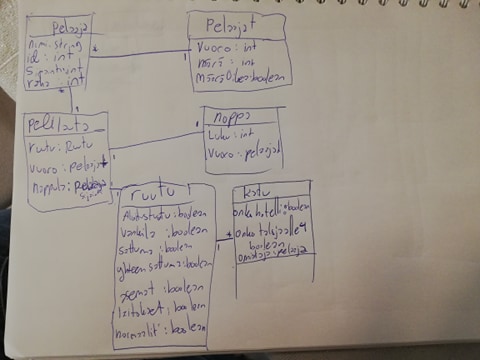 Pelaaja
nimi: string
id: int
Sijainti: int
raha: int
Pelaajat
Vuoro: int
määrä: int
Pelilauta
ruutu: Ruutu
Vuoro: pelaajat
nappula:
Noppa
Luku: int
Vuoro: pelaajat
ruutu
Aloitusruutu: boolean
Vankila: boolean
sattuma: boolean
yhteensattuma: boolean
asemat: boolean
laitokset: boolean
normaalit: boolean
katu
onko hotelli: boolean
onko
boolean
omistaja: pelaaja